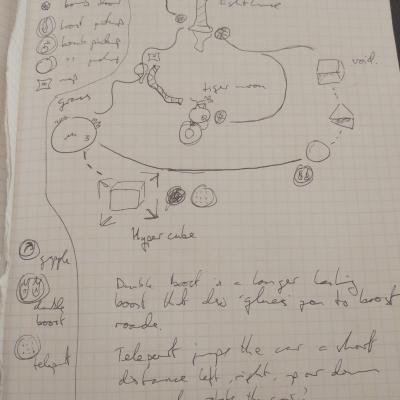 boost pickup
bomb pickup
pickup
map
lighthouse
void.
tiger moon
grass
3
Hypercube
grapple
double
boost
teleport
Double boost is a longer lasting
boost that also glues you to boost
roads.
Teleport jumps the car a short
distance left, right, up or down
the car?